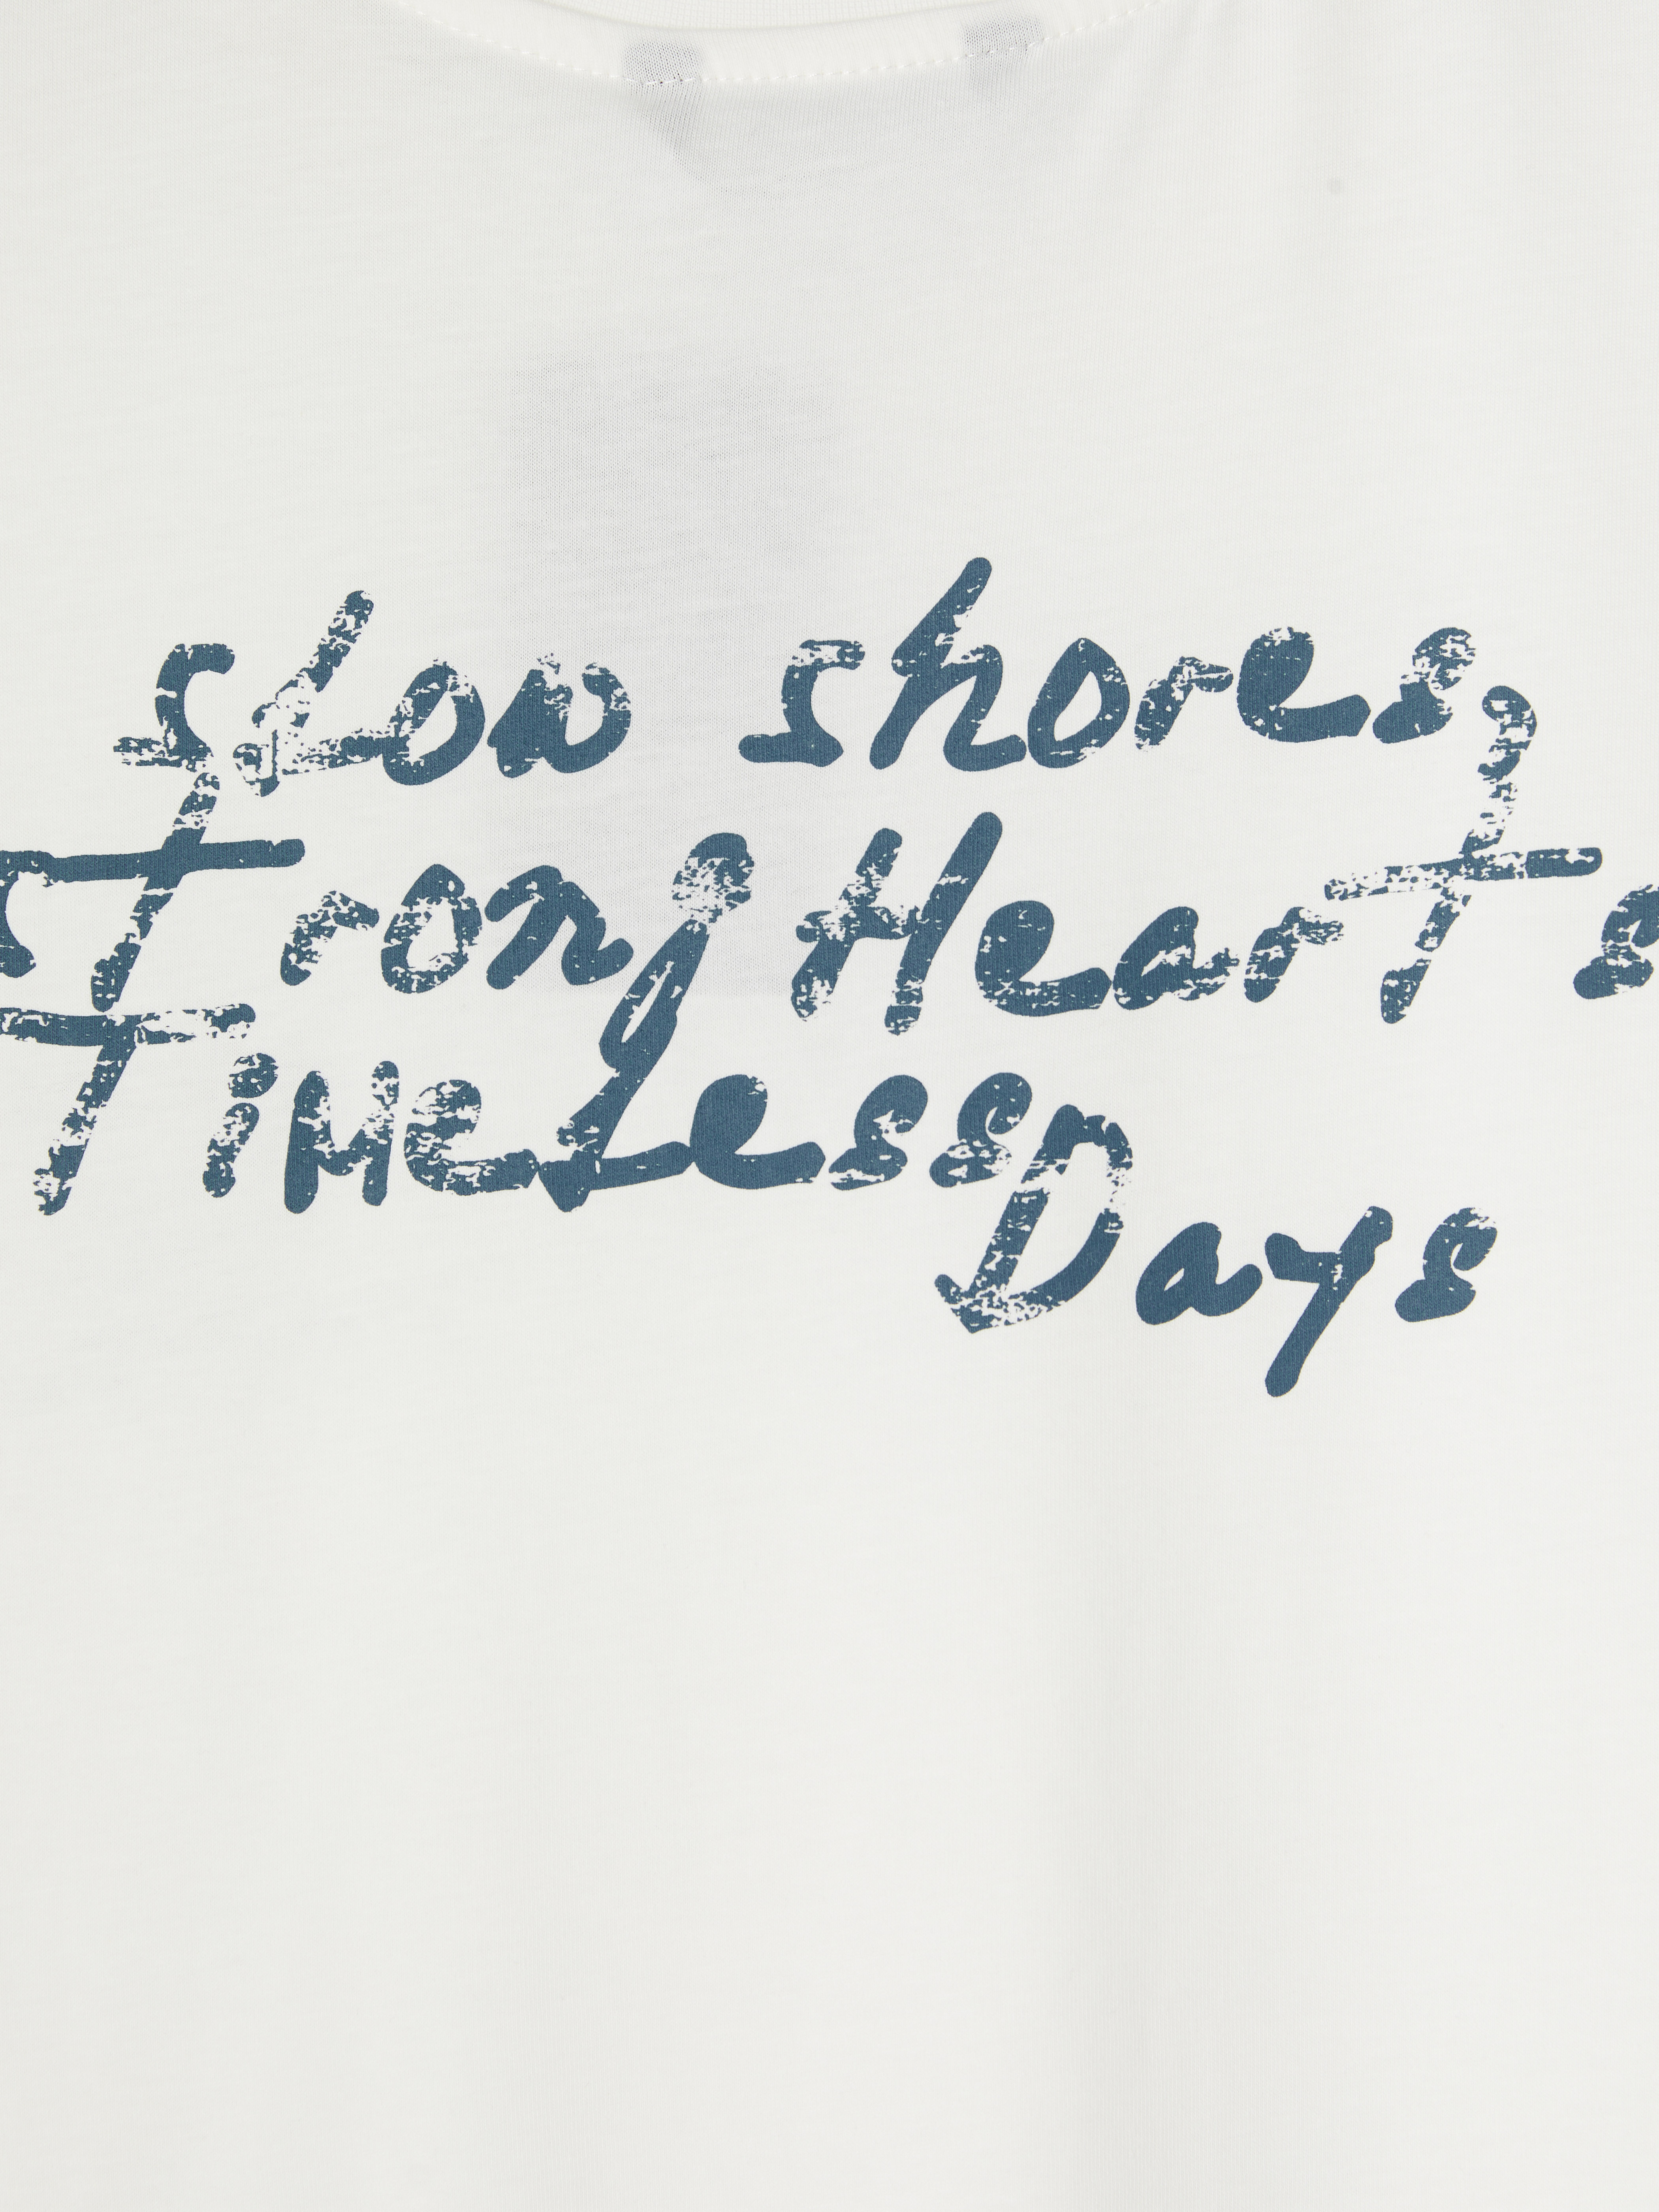 slow shores,
sTrong HearTs
TiMeLess
Days